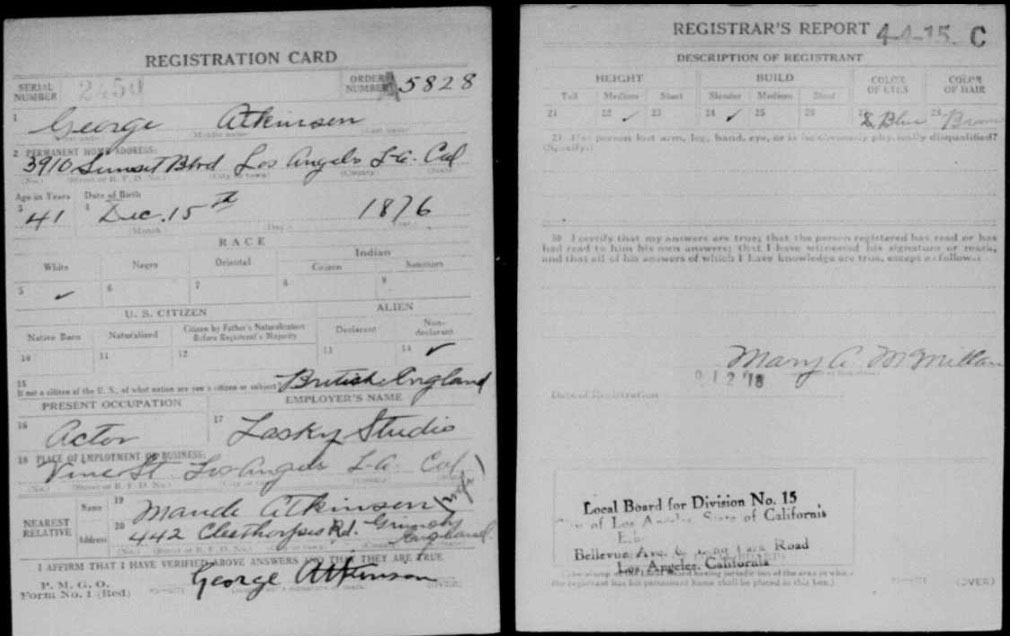 REGISTRATION CARD
SERIAL NUMBER 2450
ORDER NUMBER A5828
1 George Atkinson
2 PERMANENT HOME ADDRESS:
3910 Sunset Blvd Los Angels L-A- Cal
Age in Years Date of Birth
3 41 4 Dec. 15th 1876
RACE
White Negro Oriental Indian
Citizen Noncitizen
5 ✓ 6 7 8 9
U. S. CITIZEN ALIEN
Native Born Naturalized Citizen by Father's Naturalization Before Registrant's Majority Declarant Non-declarant
10 11 12 13 14 ✓
15 If not a citizen of the U. S., of what nation are you a citizen or subject? British England
PRESENT OCCUPATION EMPLOYER'S NAME
16 Actor 17 Lasky Studio
18 PLACE OF EMPLOYMENT OR BUSINESS:
Vine St. Los Angels L-A- Cal
NEAREST RELATIVE
Name 19 Maude Atkinson (wife)
Address 20 442 Cleethorpes Rd. Grimsby England
I AFFIRM THAT I HAVE VERIFIED ABOVE ANSWERS AND THAT THEY ARE TRUE
P. M. G. O.
Form No. 1 (Red)
George Atkinson
(OVER)
REGISTRAR'S REPORT 4-4-15. C
DESCRIPTION OF REGISTRANT
HEIGHT BUILD COLOR OF EYES COLOR OF HAIR
Tall Medium Short Slender Medium Stout
21 22 ✓ 23 24 ✓ 25 26 27 Blue 28 Brown
29 Has person lost arm, leg, hand, eye, or is he obviously physically disqualified?
(Specify.)
30 I certify that my answers are true; that the person registered has read or has
had read to him his own answers; that I have witnessed his signature or mark,
and that all of his answers of which I have knowledge are true, except as follows:
Mary A. McMillan
9 12 '18
Date of Registration
Local Board for Division No. 15
City of Los Angeles, State of California
Bellevue Ave. & Road
Los Angeles, California
(OVER)